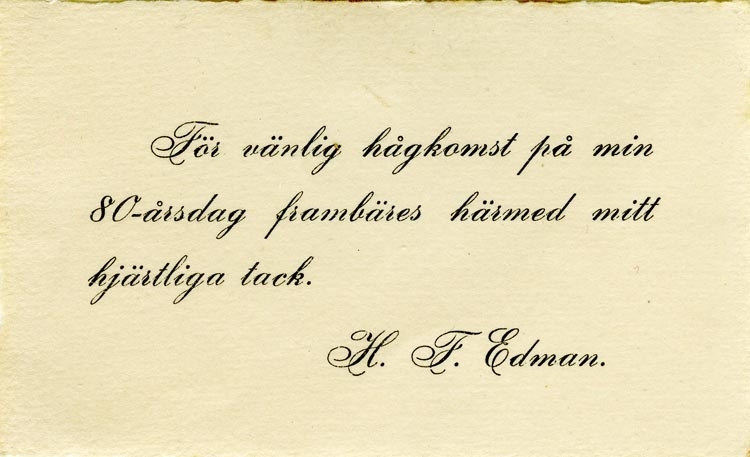 För vänlig hågkomst på min
80-årsdag frambäres härmed mitt
hjärtliga tack.
H. F. Edman.